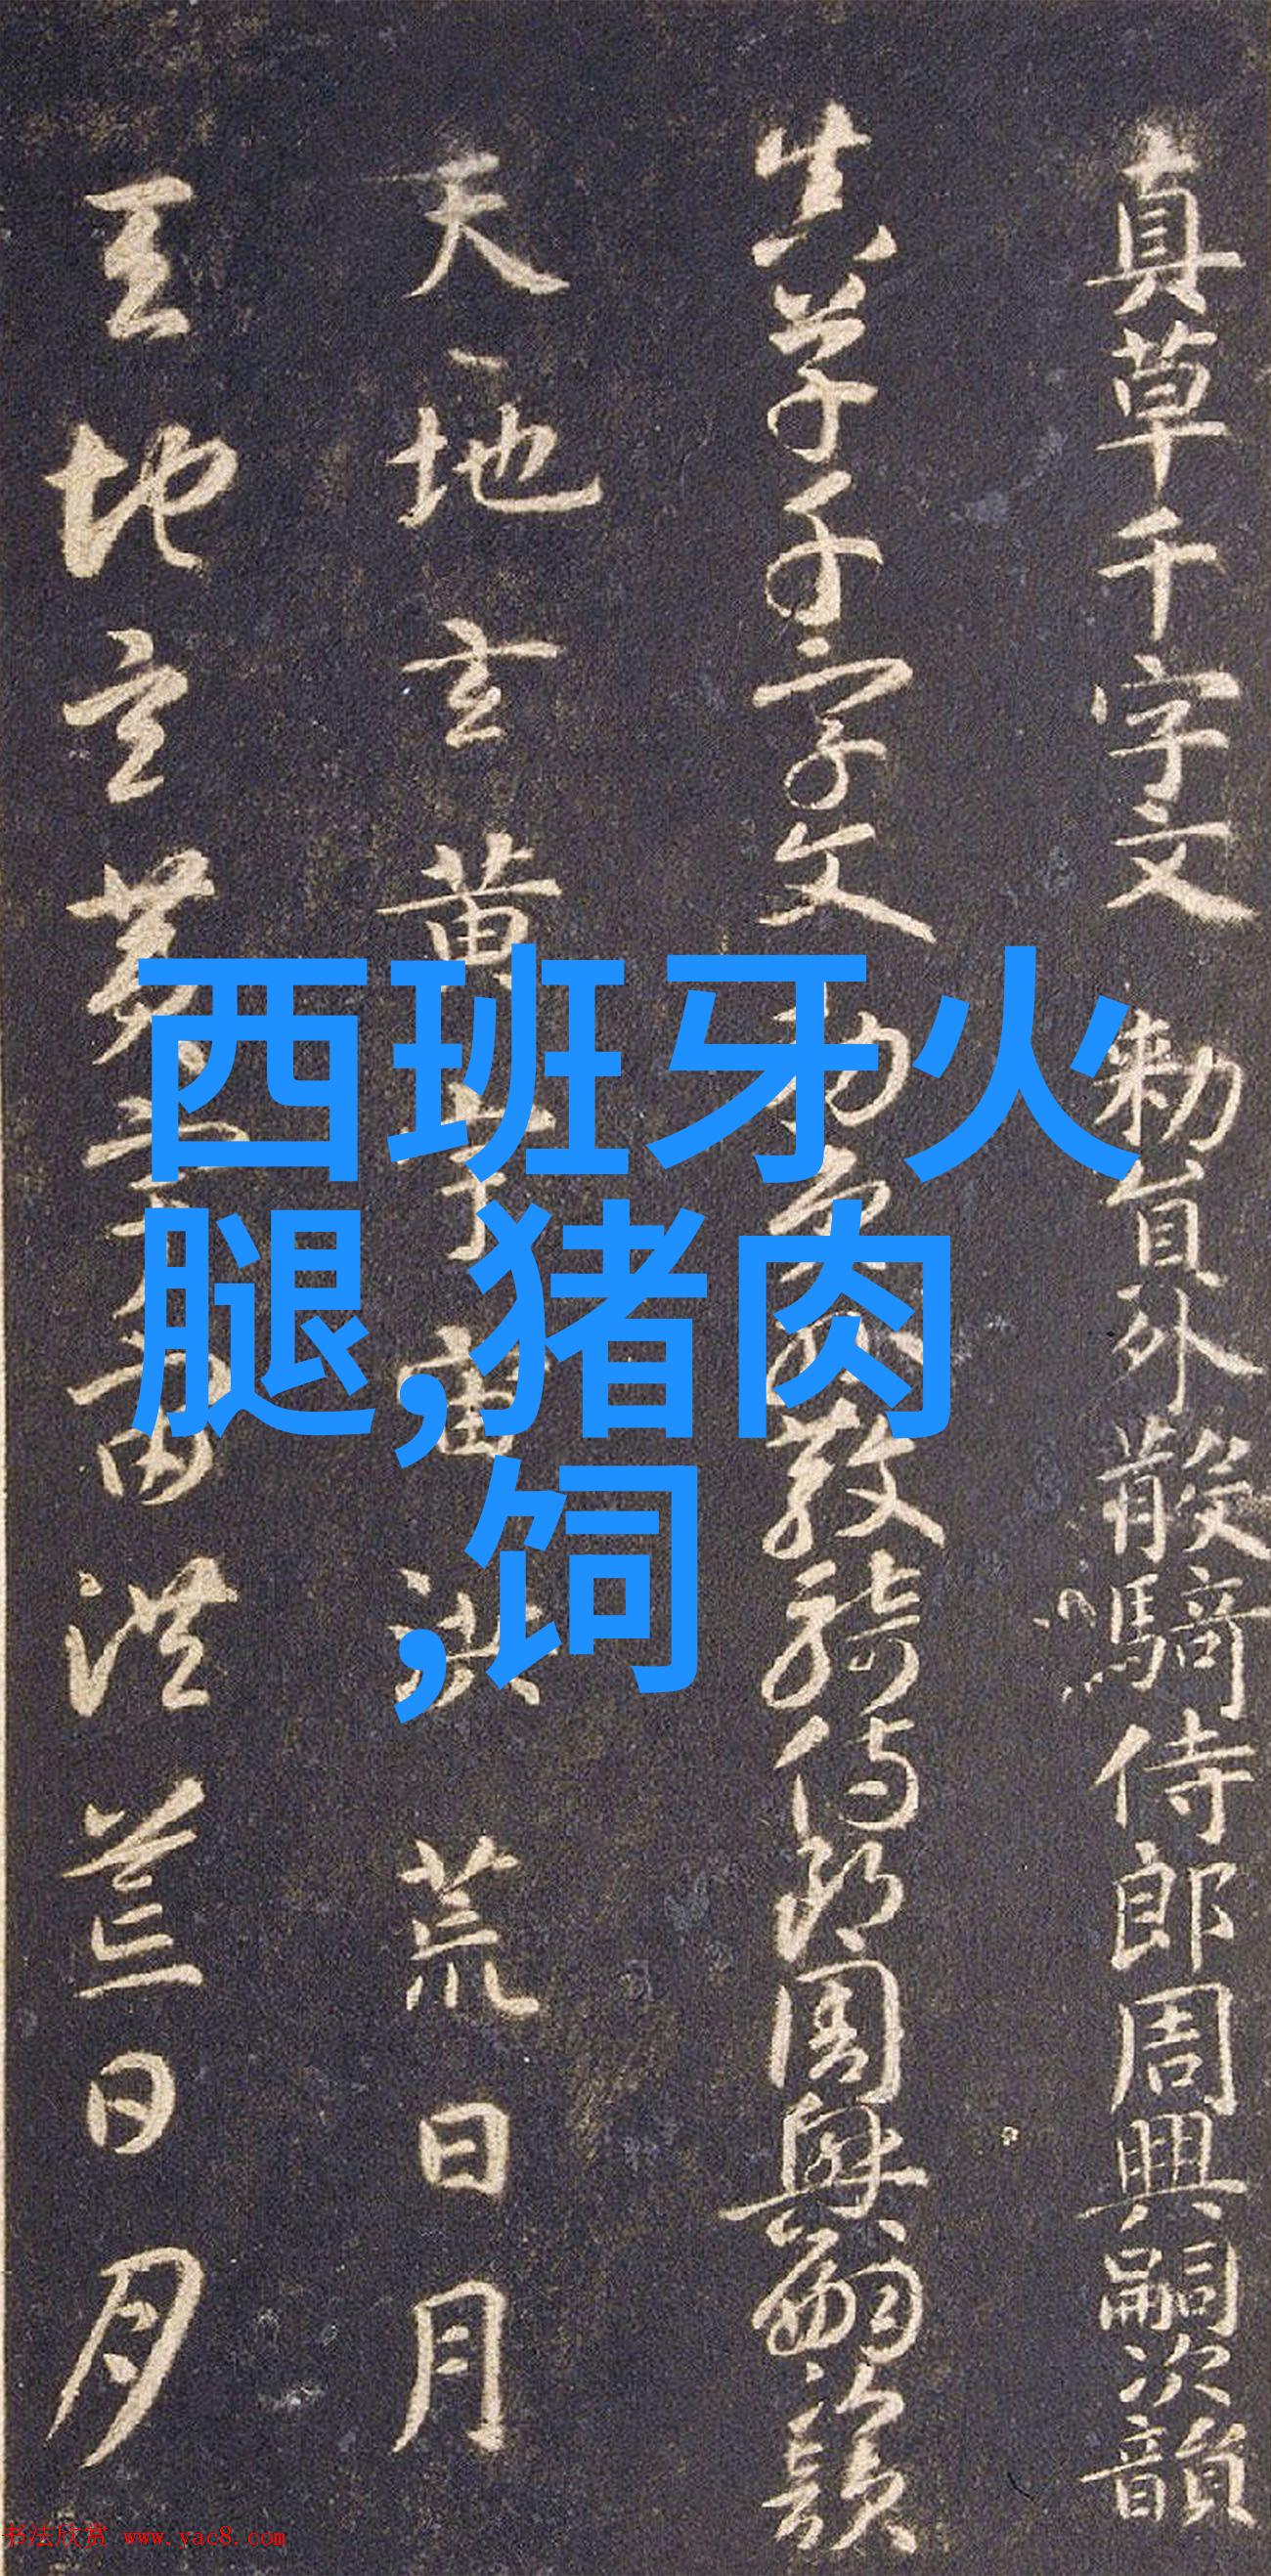 真草千字文勅員外散騎侍郎周興嗣次韻
真草千字文勅員外散騎侍郎周興嗣次韻
天地玄黄宇宙洪荒日月
天地玄黄宇宙洪荒日月
西班牙火
腿,猪肉
,饲
书法欣赏 www.yac8.com